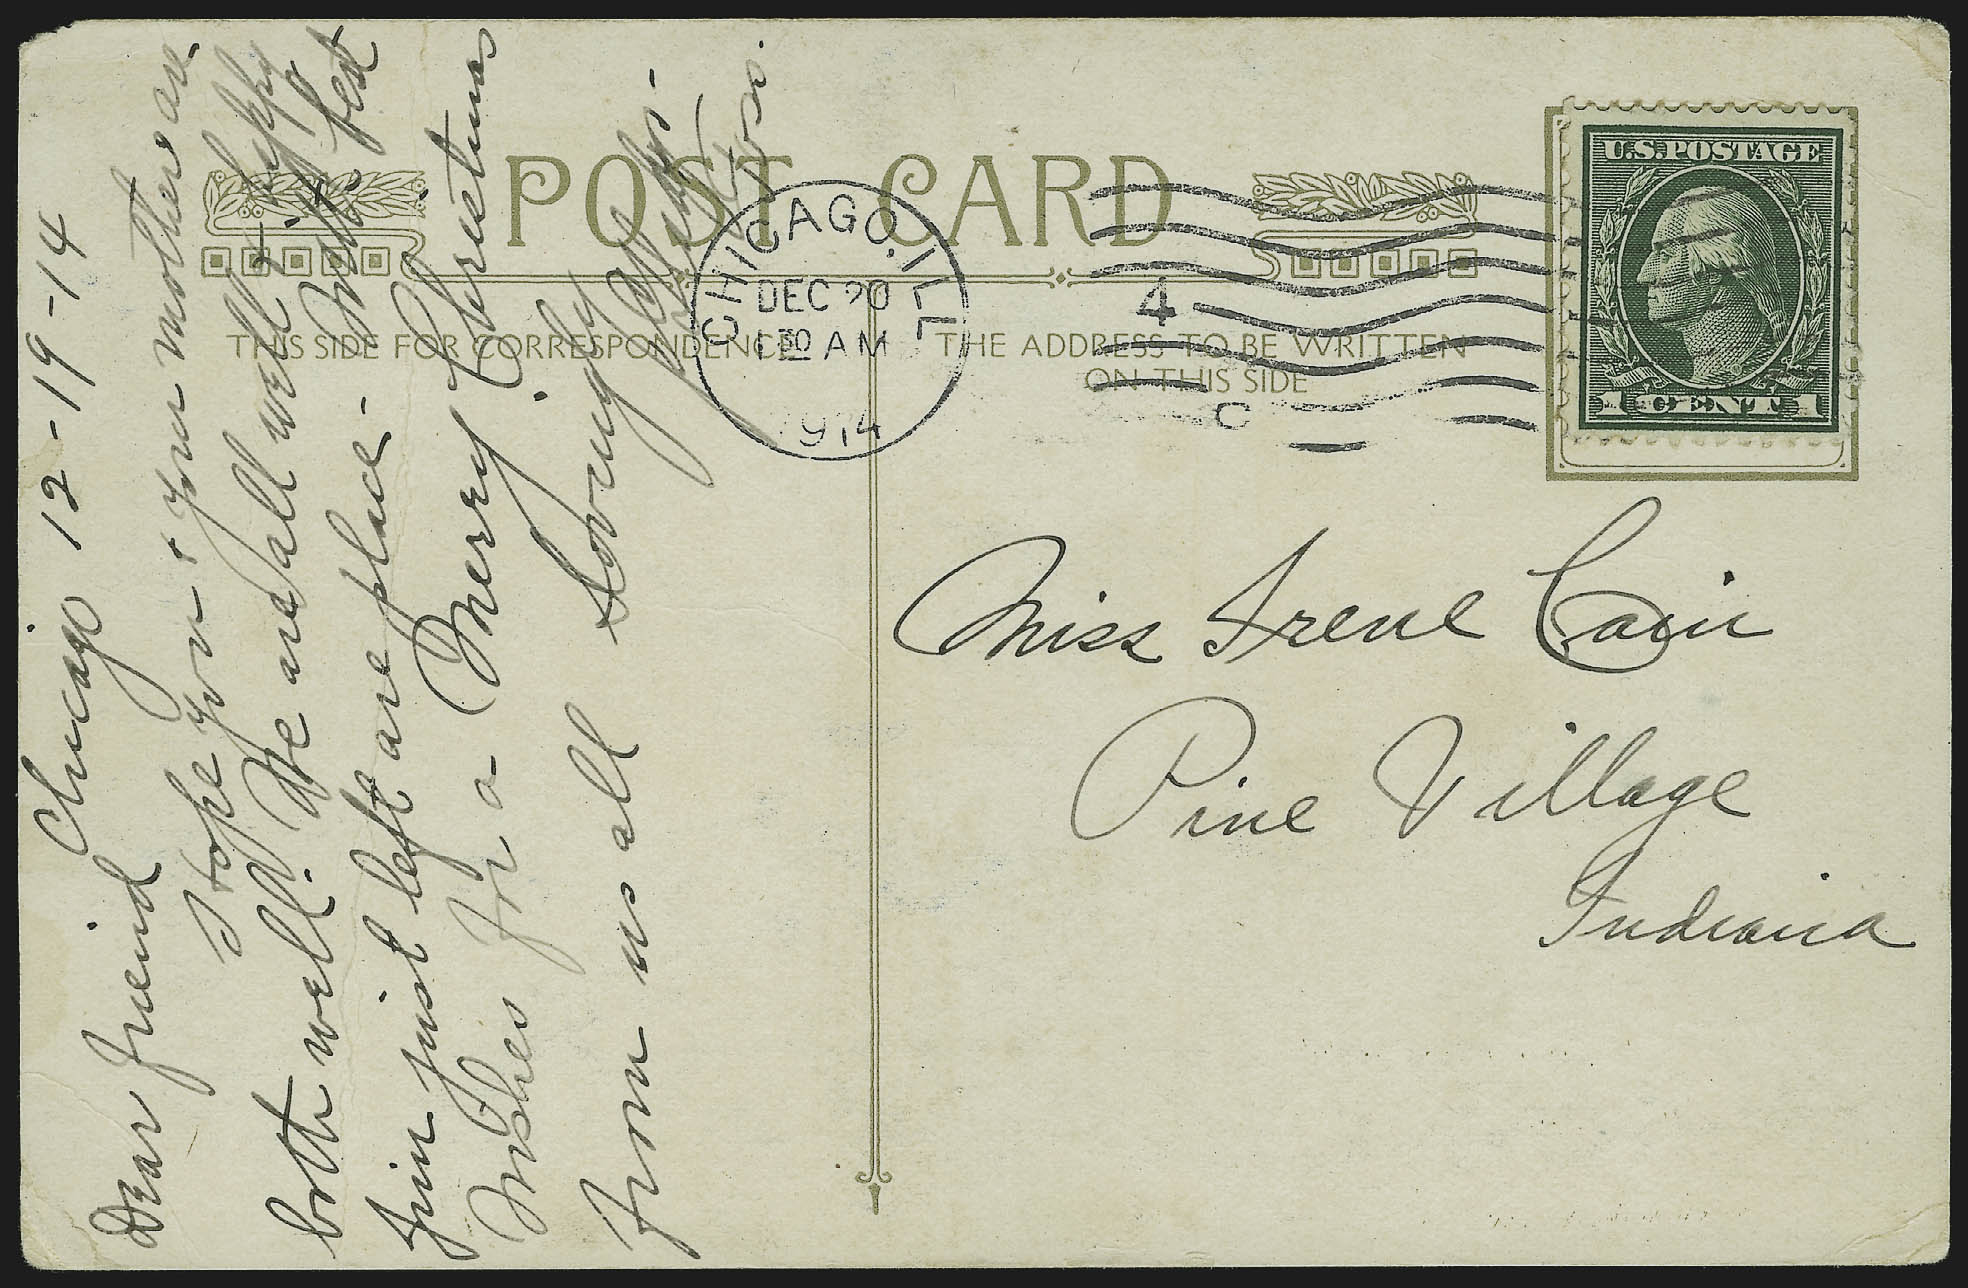 POST CARD
THIS SIDE FOR CORRESPONDENCE
THE ADDRESS TO BE WRITTEN
ON THIS SIDE
CHICAGO, ILL
DEC 20
1 30 AM
1914
4
C
U.S. POSTAGE
1 CENT 1
Chicago 12-19-14
Dear friend
I Hope you & your mother are
both well. We are all well & happy
Jim just left are place - With best
Wishes for a Merry Christmas
from us all Lovingly
Miss Irene Cain
Pine Village
Indiana